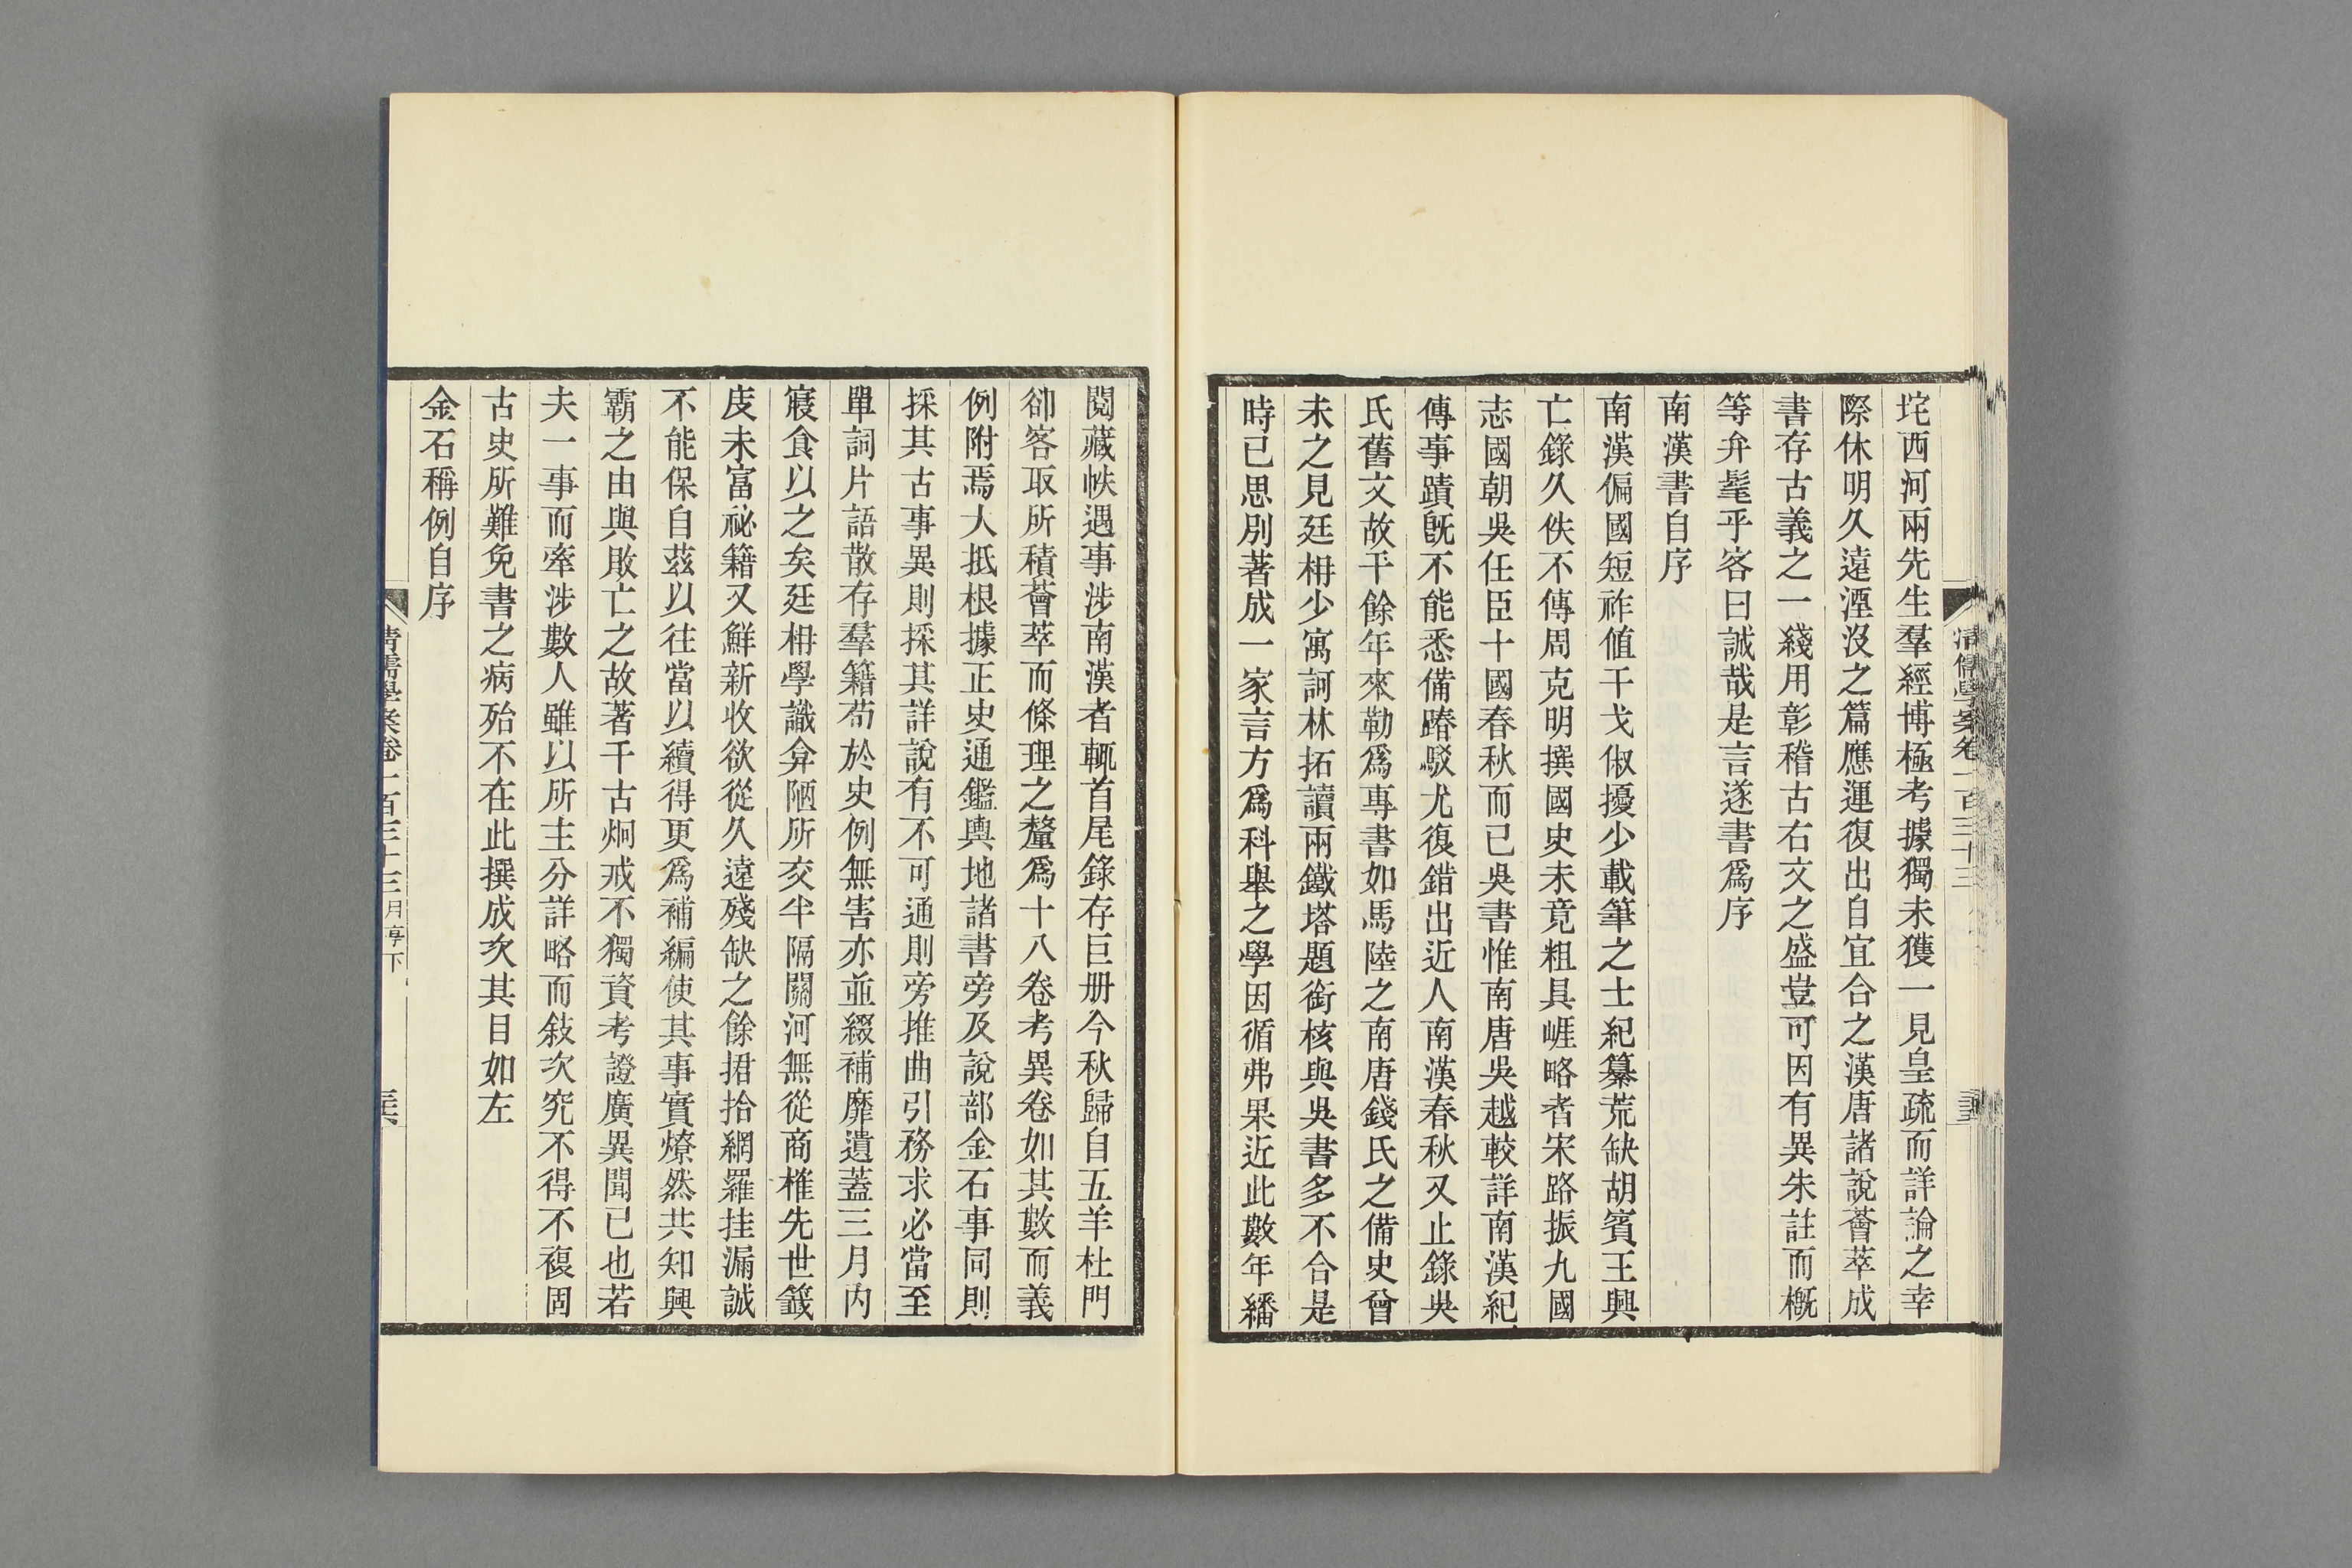 清儒學案卷一百三十三
坨西河兩先生羣經博極考據獨未獲一見皇疏而詳論之幸
際休明久遠湮沒之篇應運復出自宜合之漢唐諸說薈萃成
書存古義之一綫用彰稽古右文之盛豈可因有異朱註而槪
等弁髦乎客曰誠哉是言遂書爲序
南漢書自序
南漢偏國短祚値干戈俶擾少載筆之士紀纂荒缺胡賓王興
亡錄久佚不傳周克明撰國史未竟粗具崕略者宋路振九國
志國朝吳任臣十國春秋而已吳書惟南唐吳越較詳南漢紀
傳事蹟旣不能悉備踳駁尤復錯出近人南漢春秋又止錄吳
氏舊文故千餘年來勒爲專書如馬陸之南唐錢氏之備史曾
未之見廷枏少寓訶林拓讀兩鐵塔題銜核與吳書多不合是
時已思別著成一家言方爲科舉之學因循弗果近此數年繙
閱藏帙遇事涉南漢者輒首尾錄存巨册今秋歸自五羊杜門
卻客取所積薈萃而條理之釐爲十八卷考異卷如其數而義
例附焉大抵根據正史通鑑輿地諸書旁及說部金石事同則
採其古事異則採其詳說有不可通則旁推曲引務求必當至
單詞片語散存羣籍苟於史例無害亦並綴補靡遺蓋三月內
寢食以之矣廷枏學識弇陋所交半隔關河無從商榷先世籤
庋未富祕籍又鮮新收欲從久遠殘缺之餘捃拾網羅挂漏誠
不能保自茲以往當以續得更爲補編使其事實燎然共知興
霸之由與敗亡之故著千古炯戒不獨資考證廣異聞已也若
夫一事而牽涉數人雖以所主分詳略而敍次究不得不複固
古史所難免書之病殆不在此撰成次其目如左
金石稱例自序
清儒學案卷一百三十三月亭下